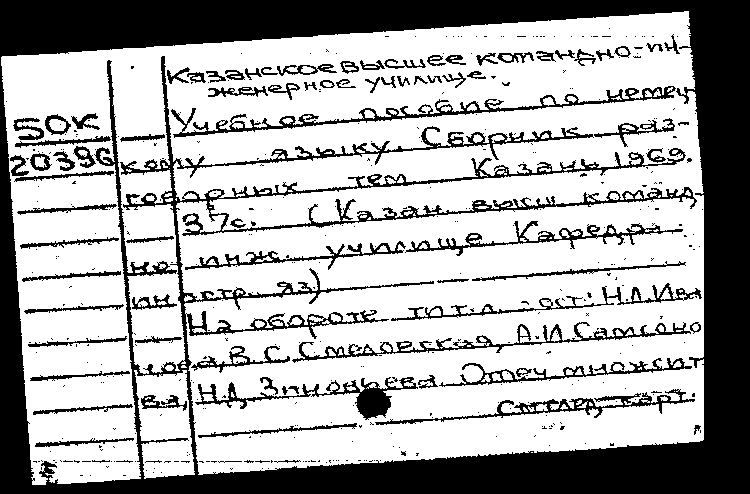 Казанское высшее командно-ин-
женерное училище.
50К
Учебное пособие по немец
20396
кому языку. Сборник раз-
говорных тем Казань, 1969.
37с. (Казан. высш. команд-
но инж. училище. Кафедра
иностр. яз)
На обороте тит.л. :ост: Н.Л.Ива
нова, В.С.Смеловская, А.И.Самсоно
ва, Н.Д. Зиновьева. Отеч множит
карт.